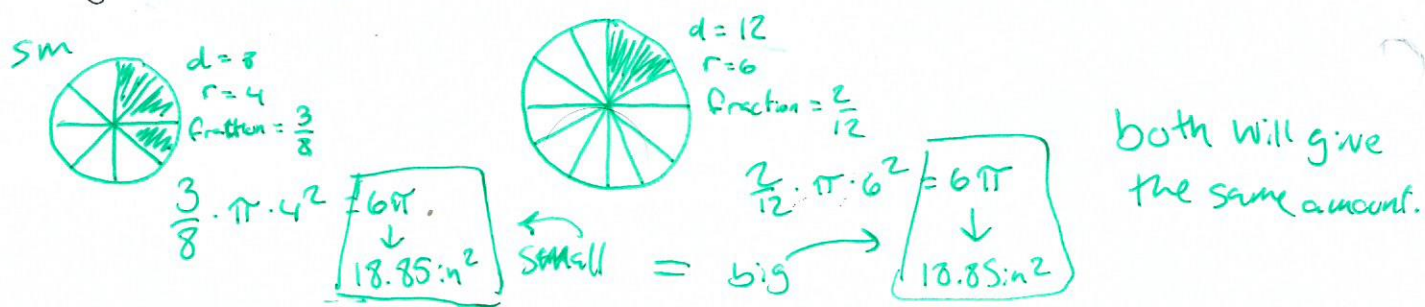 sm
d = 8
r = 4
fraction = 3/8
3/8 · π · 4² = 6π.
↓
18.85 in²
small = big
d = 12
r = 6
fraction = 2/12
2/12 · π · 6² = 6π
↓
18.85 in²
both will give
the same amount.